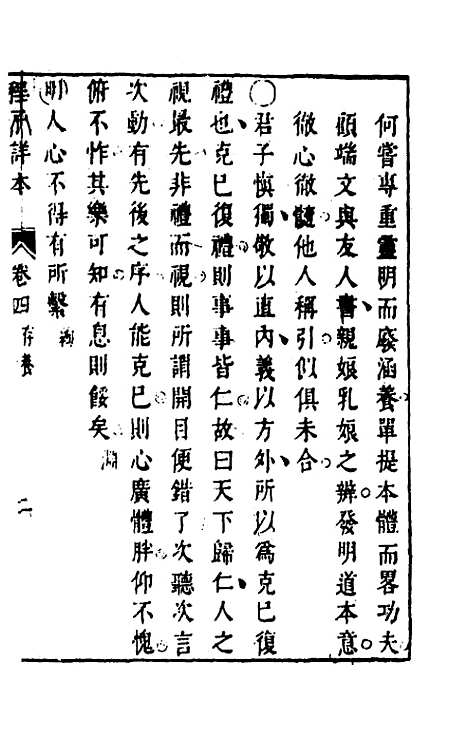 何嘗專重靈明而廢涵養單提本體而畧功夫
顧端文與友人書親娘乳娘之辨發明道本意
微心微髓他人稱引似俱未合
〇君子慎獨敬以直內義以方外所以爲克已復
禮也克已復禮則事事皆仁故曰天下歸仁人之
視最先非禮而視則所謂開目便錯了次聽次言
次動有先後之序人能克已則心廣體胖仰不愧
俯不怍其樂可知有息則餒矣
明人心不得有所繫
詳本
卷四
存養
二